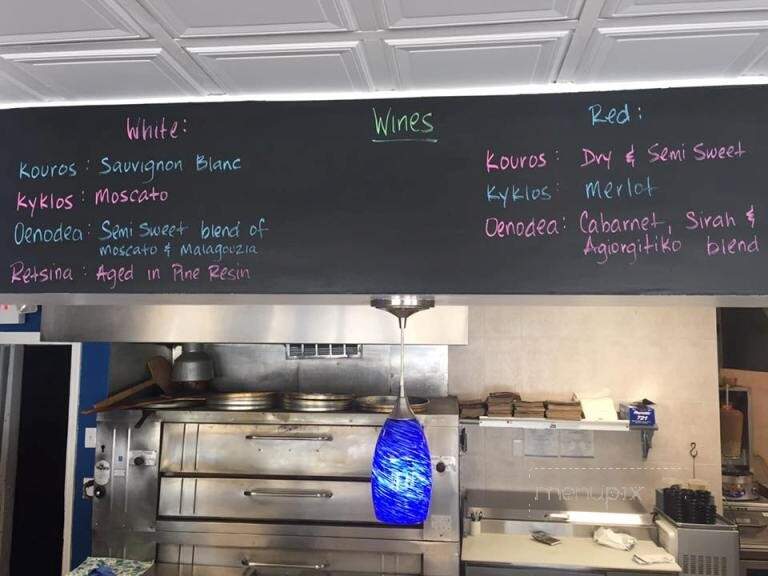 Wines
White:
Kouros: Sauvignon Blanc
Kyklos: Moscato
Oenodea: Semi Sweet blend of
Moscato & Malagouzia
Retsina: Aged in Pine Resin
Red:
Kouros: Dry & Semi Sweet
Kyklos: Merlot
Oenodea: Cabarnet, Sirah &
Agiorgitiko blend
721
menupix